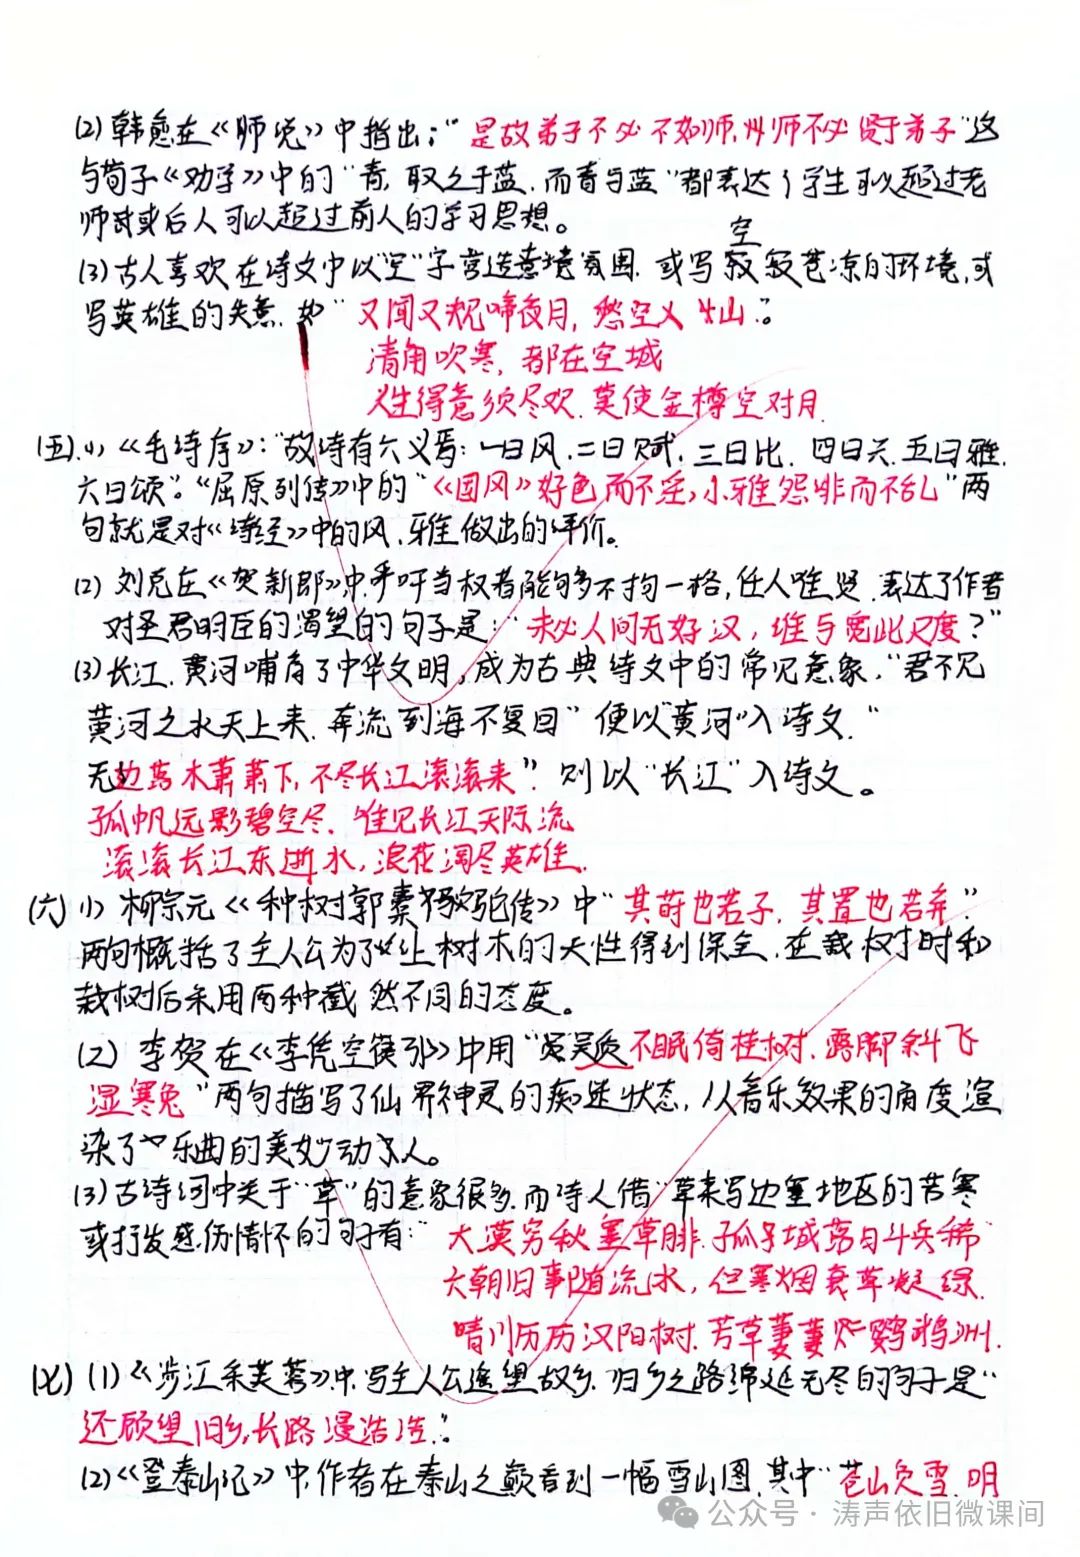 (2) 韩愈在《师说》中指出：“是故弟子不必不如师，师不必贤于弟子”这
与荀子《劝学》中的“青，取之于蓝，而青于蓝”都表达了学生可以超过老
师或后人可以超过前人的学习思想。
空
(3) 古人喜欢在诗文中以“空”字营造意境氛围，或写寂寥苍凉的环境，或
写英雄的失意，如“又闻子规啼夜月，愁空山”。
清角吹寒，都在空城
人生得意须尽欢，莫使金樽空对月
(五)(1)《毛诗序》：“故诗有六义焉：一曰风，二曰赋，三曰比，四曰兴，五曰雅，
六曰颂”。“屈原列传》中的“《国风》好色而不淫，小雅怨诽而不乱”两
句就是对《诗经》中的风、雅做出的评价。
(2) 刘克庄《贺新郎》中，呼吁当权者能够多不拘一格，任人唯贤，表达了作者
对圣君明臣的渴望的句子是：“未必人间无好汉，谁与宽此尺度？”
(3) 长江、黄河哺育了中华文明，成为古典诗文中的常见意象，“君不见
黄河之水天上来，奔流到海不复回”便以“黄河”入诗文，“
无边落木萧萧下，不尽长江滚滚来”，则以“长江”入诗文。
孤帆远影碧空尽，唯见长江天际流
滚滚长江东逝水，浪花淘尽英雄
(六)(1) 柳宗元《种树郭橐驼传》中“其莳也若子，其置也若弃”
两句概括了主人公为了让树木的天性得到保全，在栽树时和
栽树后采用两种截然不同的态度。
(2) 李贺在《李凭空篌引》中用“吴质不眠倚桂树，露脚斜飞
湿寒兔”两句描写了仙界神灵的痴迷状态，从音乐效果的角度渲
染了乐曲的美妙动人。
(3) 古诗词中关于“草”的意象很多，而诗人借“草”来写边塞地区的苦寒
或抒发感伤情怀的句子有：“大漠穷秋塞草腓，孤城落日斗兵稀
六朝旧事随流水，但寒烟衰草凝绿
晴川历历汉阳树，芳草萋萋鹦鹉洲.
(七)(1)《涉江采芙蓉》中，写主人公遥望故乡，归乡之路绵延无尽的句子是“
还顾望旧乡，长路漫浩浩”。
(2)《登泰山记》中，作者在泰山之巅看到一幅雪山图，其中“苍山负雪，明
公众号·涛声依旧微课间